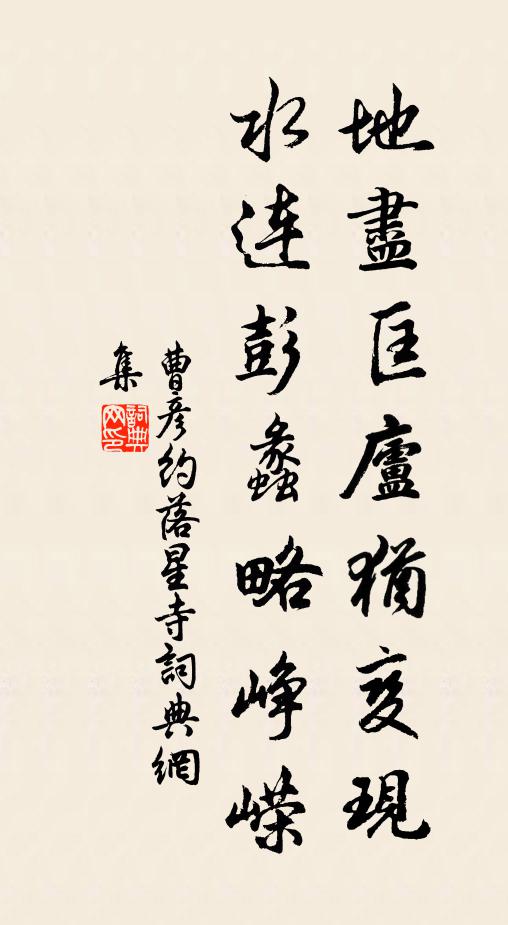 地盡匡廬猶变現
水連彭蠡略峥嵘
曹彦约落星寺詞典網
集
詞典网印